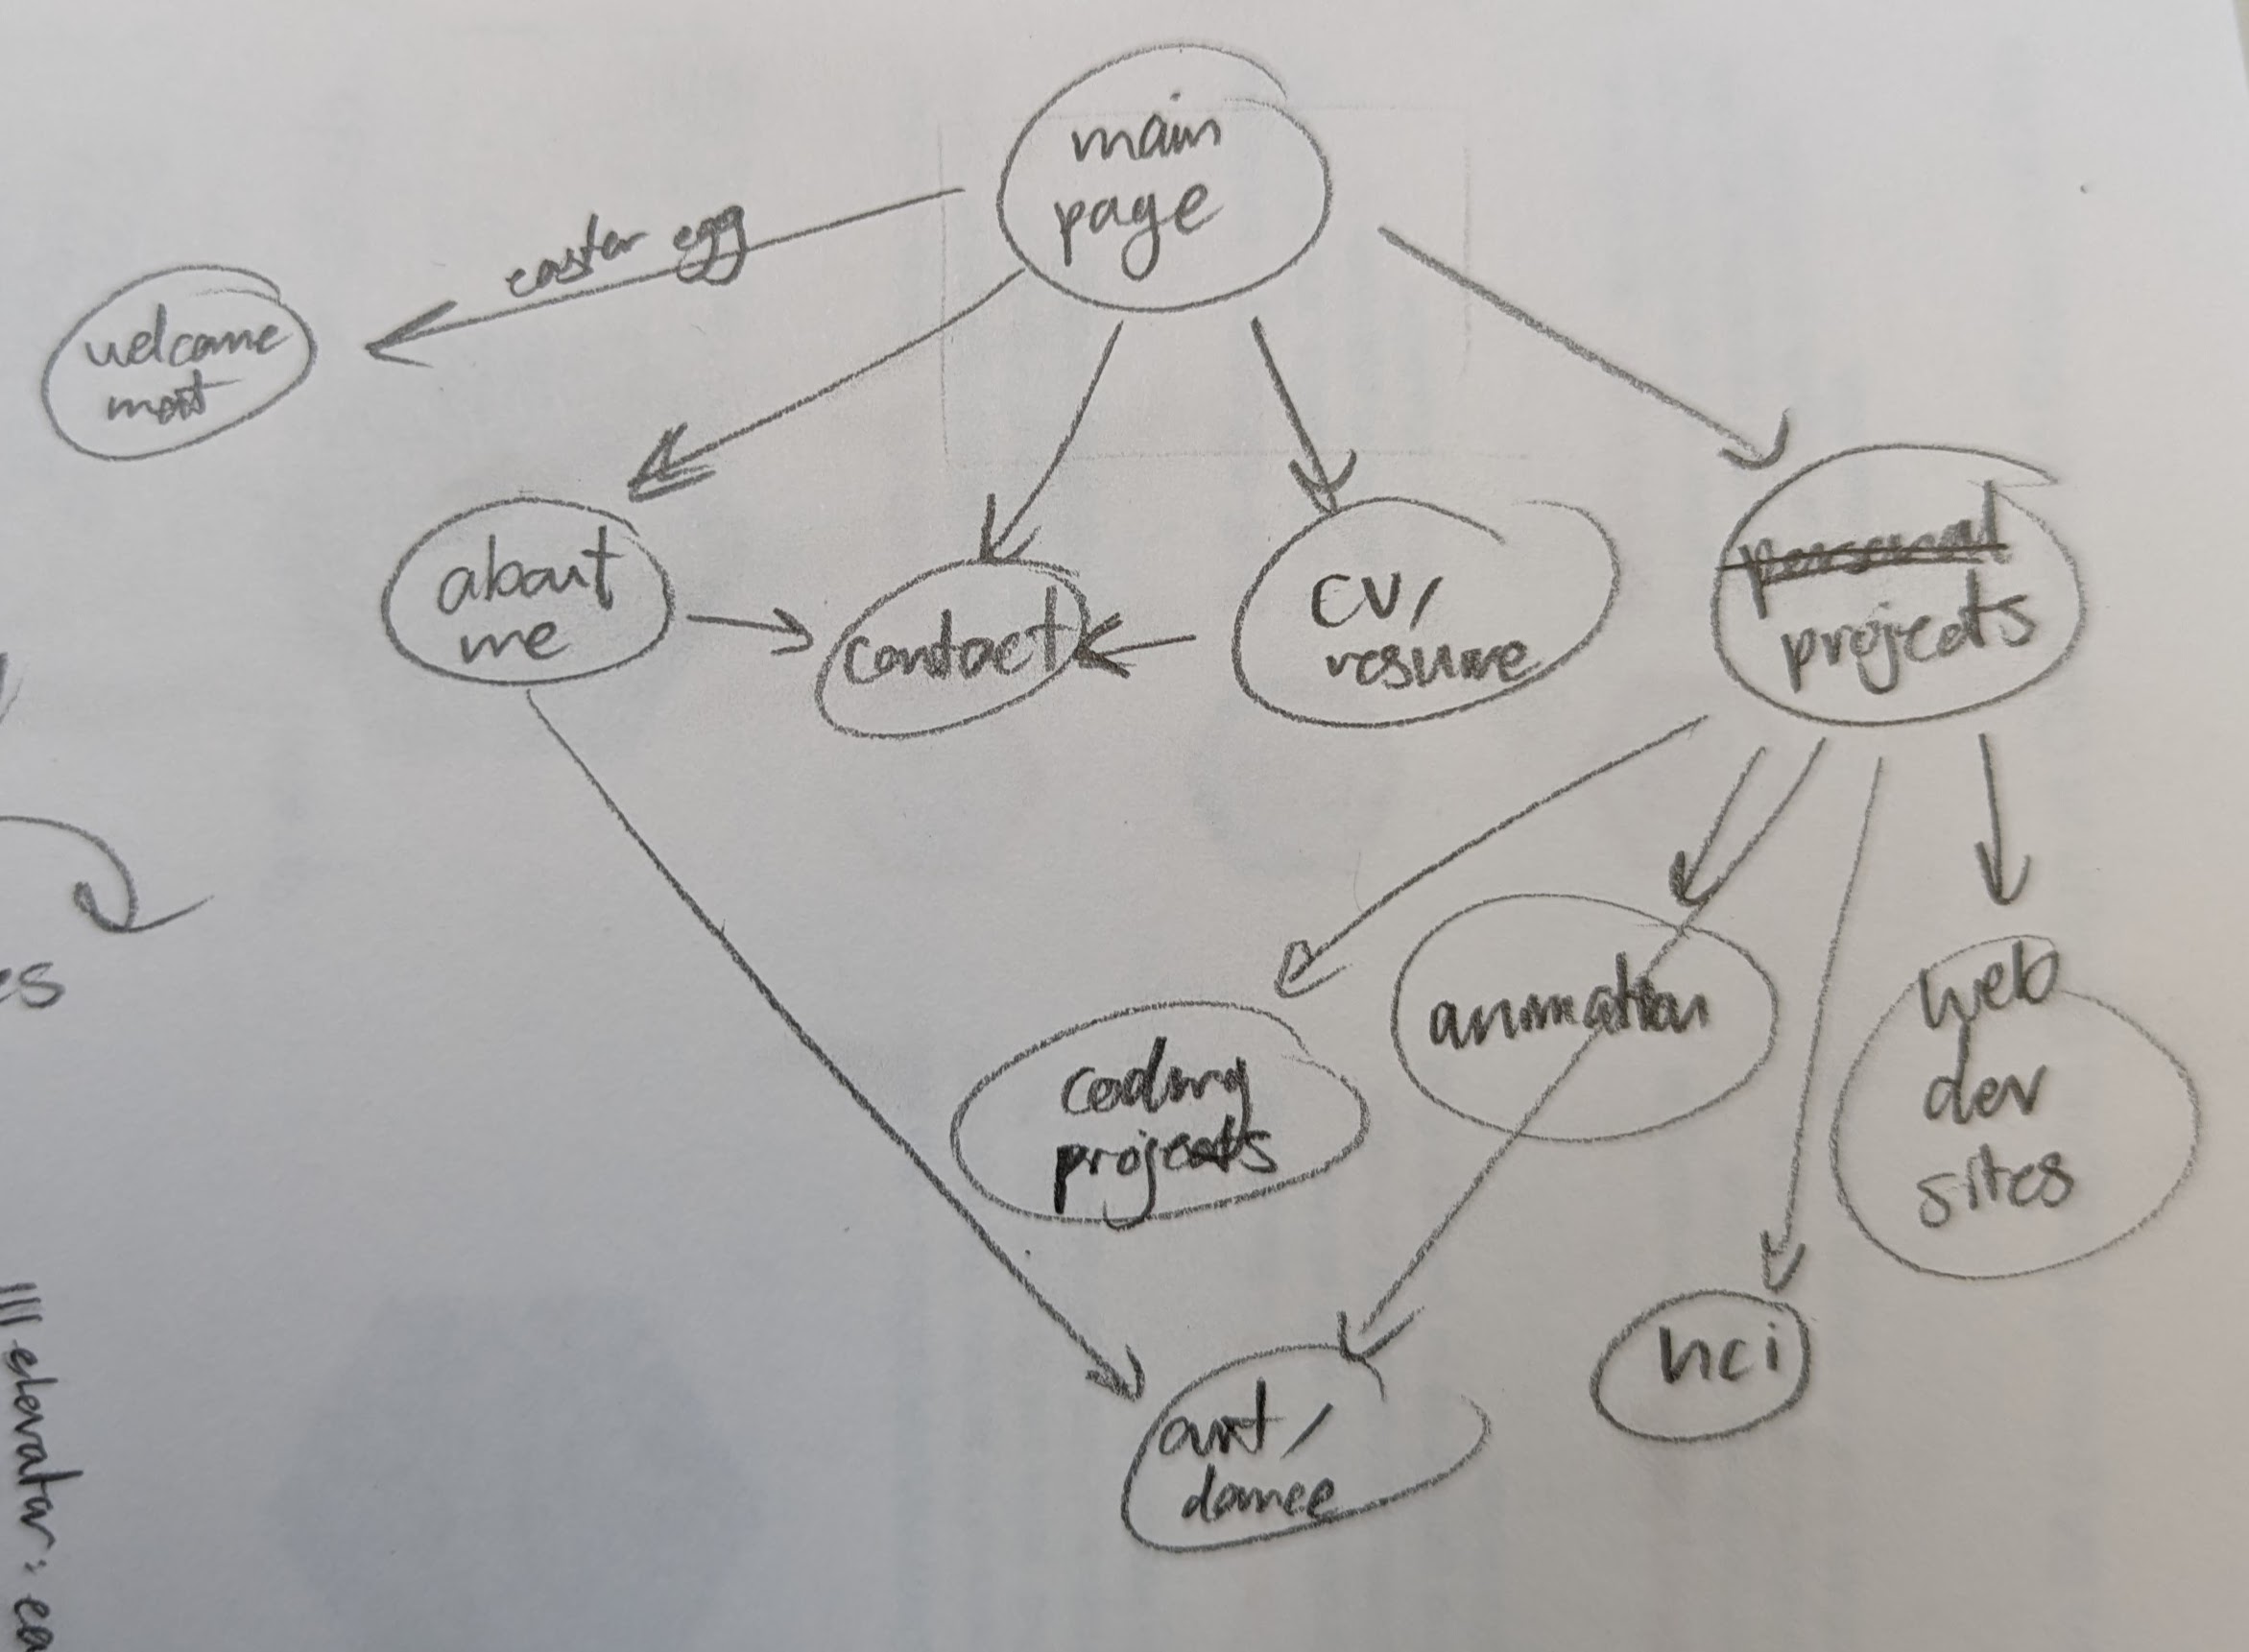 main
page
easter egg
welcome
mat
about
me
contact
CV/
resume
personal
projects
coding
projects
animation
web
dev
sites
hci
art/
dance
es
elevator: ea